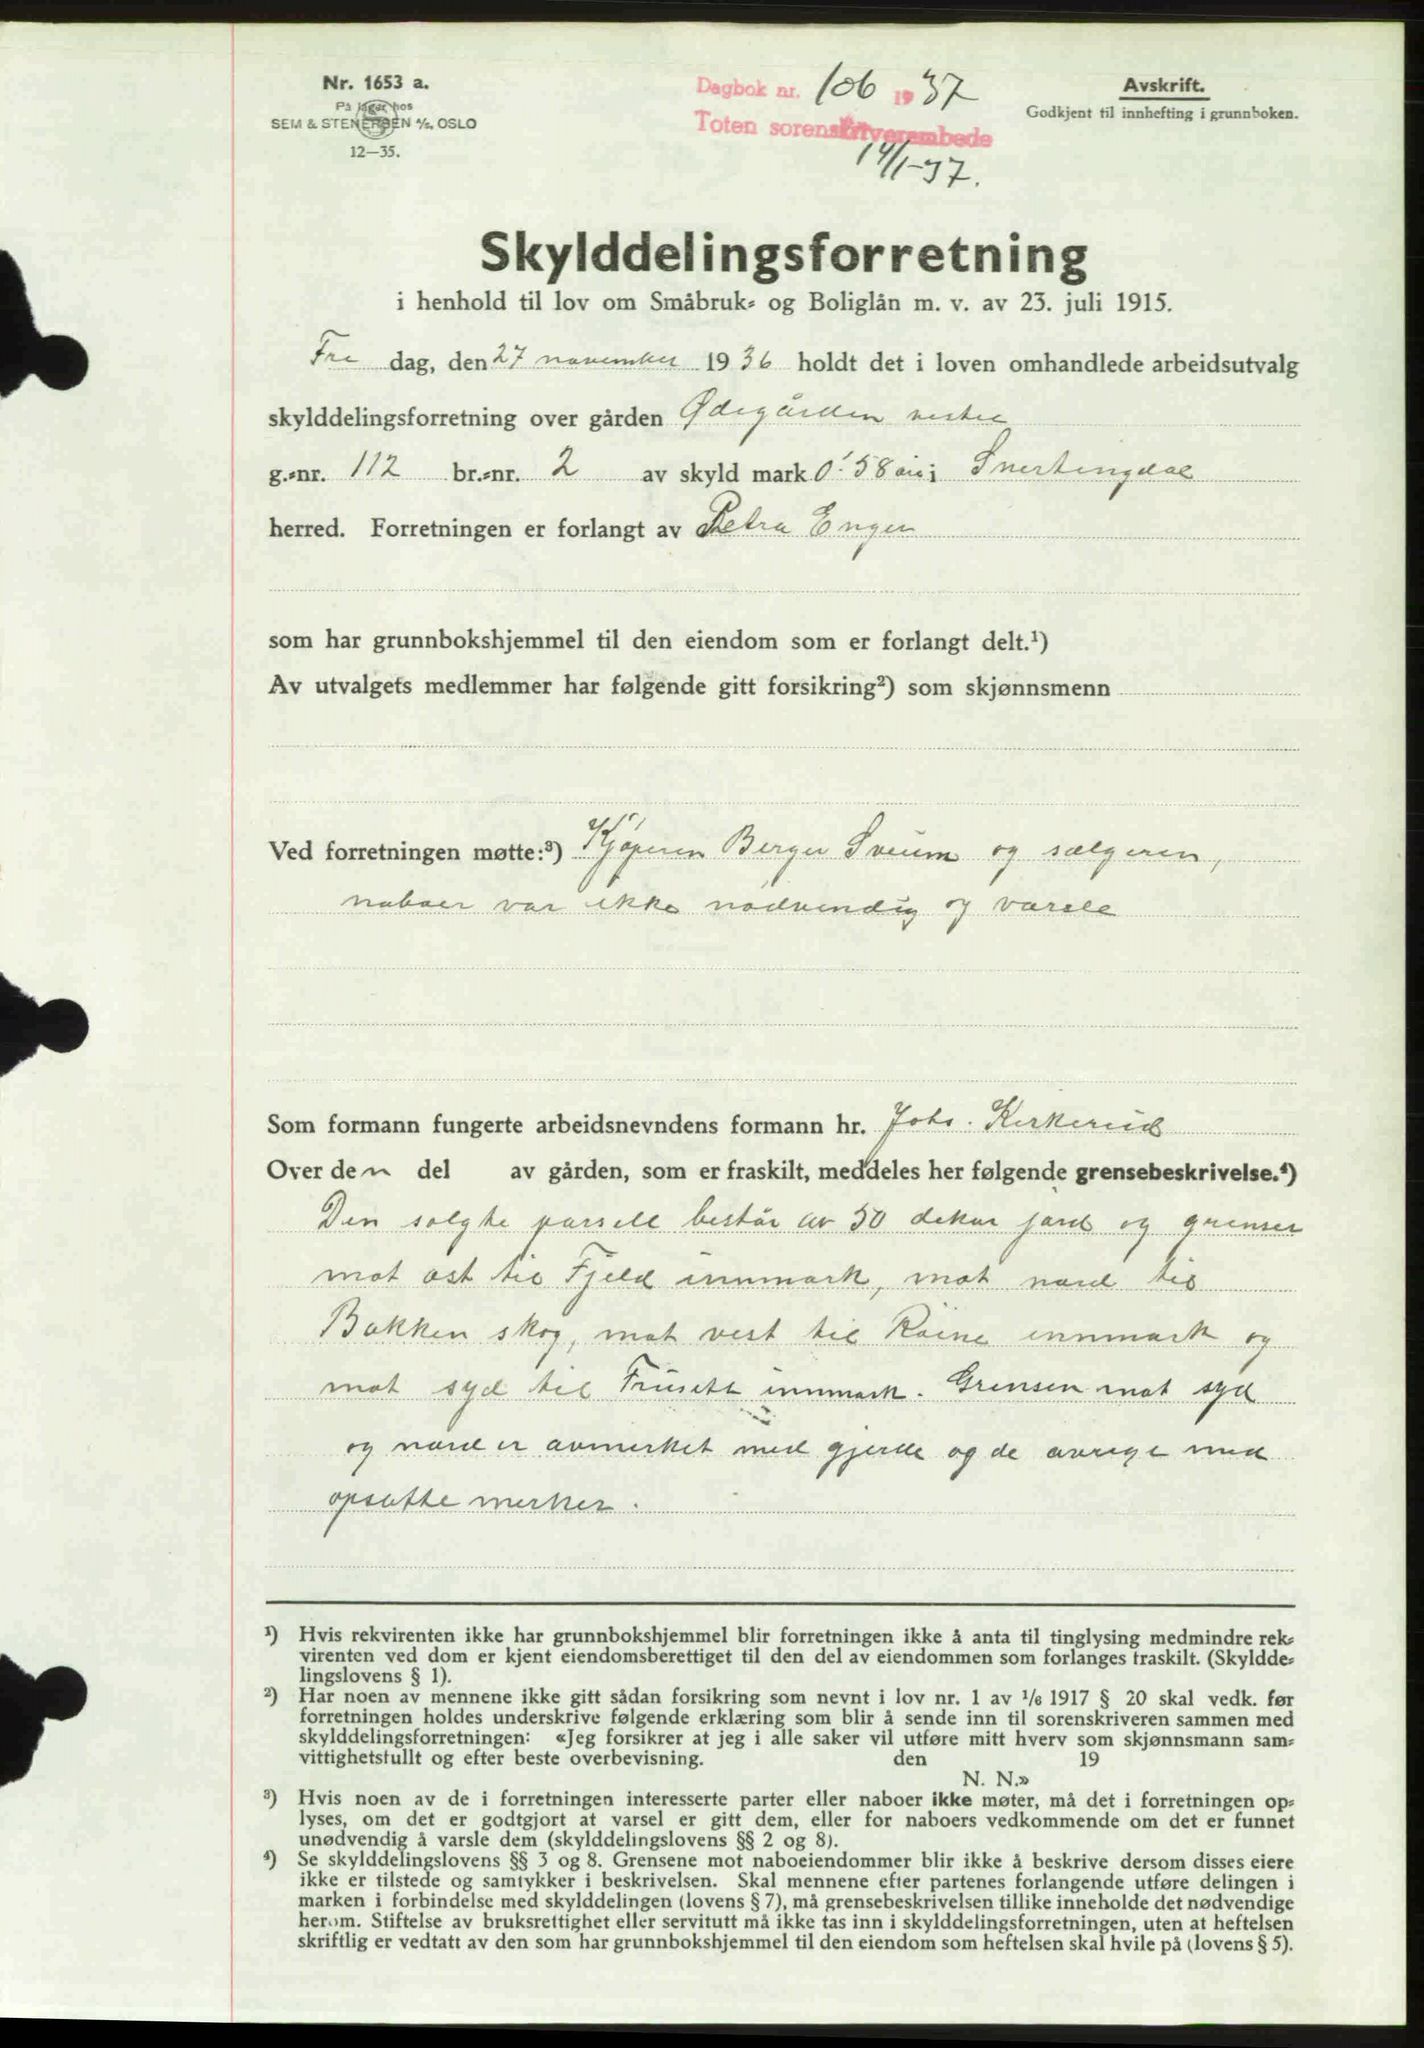 Nr. 1653 a.
På lager hos
SEM & STENERSEN A/S, OSLO
12—35.
Dagbok nr. 106 1937
Toten sorenskriverembede
14/1-37.
Avskrift.
Godkjent til innhefting i grunnboken.
Skylddelingsforretning
i henhold til lov om Småbruk- og Boliglån m. v. av 23. juli 1915.
Fre dag, den 27 november 1936 holdt det i loven omhandlede arbeidsutvalg
skylddelingsforretning over gården Ødegården vestre
g.-nr. 112 br.-nr. 2 av skyld mark 0.58 øre i Snertingdal
herred. Forretningen er forlangt av Petra Enger
som har grunnbokshjemmel til den eiendom som er forlangt delt.¹)
Av utvalgets medlemmer har følgende gitt forsikring²) som skjønnsmenn
Ved forretningen møtte:³) Kjøperen Berger Sveum og sælgeren,
naboer var ikke nødvendig og varsle
Som formann fungerte arbeidsnevndens formann hr. Johs. Kirkerud
Over den del av gården, som er fraskilt, meddeles her følgende grensebeskrivelse.⁴)
Den solgte parsell består av 50 dekar jord og grenser
mot øst til Fjeld innmark, mot nord til
Bakken skog, mot vest til Røine innmark og
mot syd til Frusett innmark. Grensen mot syd
og nord er avmerket med gjerde og de øvrige med
opsatte merker.
¹) Hvis rekvirenten ikke har grunnbokshjemmel blir forretningen ikke å anta til tinglysing medmindre rek-
virenten ved dom er kjent eiendomsberettiget til den del av eiendommen som forlanges fraskilt. (Skyldde-
lingslovens § 1).
²) Har noen av mennene ikke gitt sådan forsikring som nevnt i lov nr. 1 av 1/6 1917 § 20 skal vedk. før
forretningen holdes underskrive følgende erklæring som blir å sende inn til sorenskriveren sammen med
skylddelingsforretningen: «Jeg forsikrer at jeg i alle saker vil utføre mitt hverv som skjønnsmann sam-
vittighetsfullt og efter beste overbevisning. den 19
N. N.»
³) Hvis noen av de i forretningen interesserte parter eller naboer ikke møter, må det i forretningen op-
lyses, om det er godtgjort at varsel er gitt dem, eller for naboers vedkommende om det er funnet
unødvendig å varsle dem (skylddelingslovens §§ 2 og 8).
⁴) Se skylddelingslovens §§ 3 og 8. Grensene mot naboeiendommer blir ikke å beskrive dersom disses eiere
ikke er tilstede og samtykker i beskrivelsen. Skal mennene efter partenes forlangende utføre delingen i
marken i forbindelse med skylddelingen (lovens § 7), må grensebeskrivelsen tillike inneholde det nødvendige
herom. Stiftelse av bruksrettighet eller servitutt må ikke tas inn i skylddelingsforretningen, uten at heftelsen
skriftlig er vedtatt av den som har grunnbokshjemmel til den eiendom som heftelsen skal hvile på (lovens § 5).